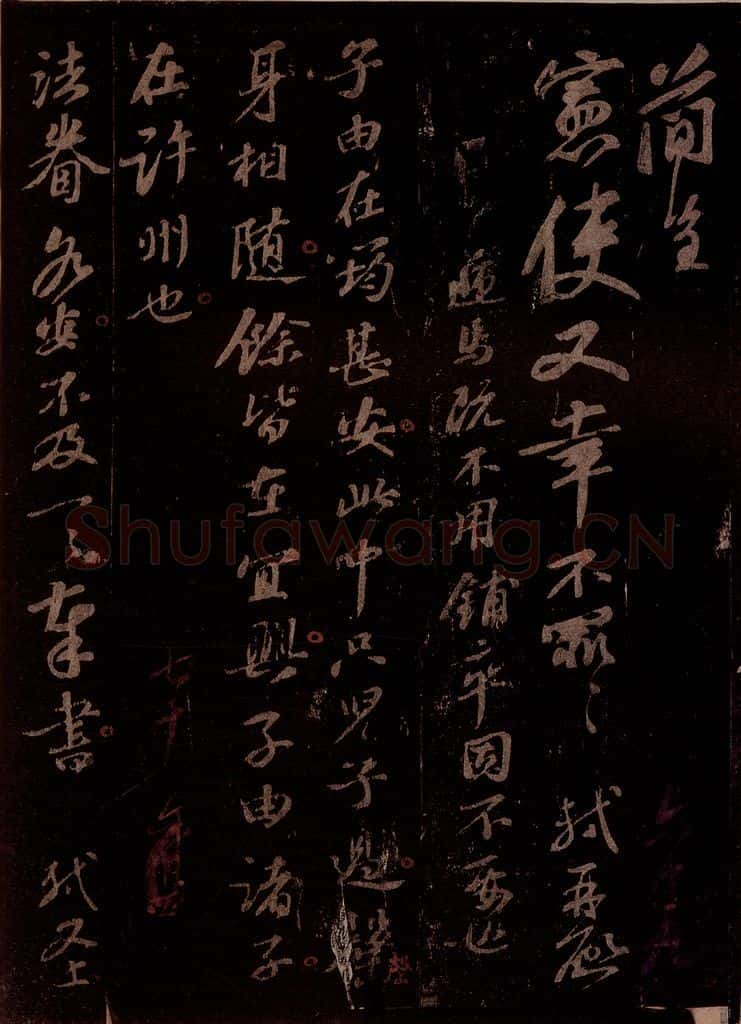 简至
憲使又幸不罪〻 軾再啟
馬既不用鋪卒因不要
子由在筠甚安此中只兒子過罄
身相隨餘皆在宜興子由諸子
在許州也
法眷各安不及一一奉書 軾又上
Shufawang.CN